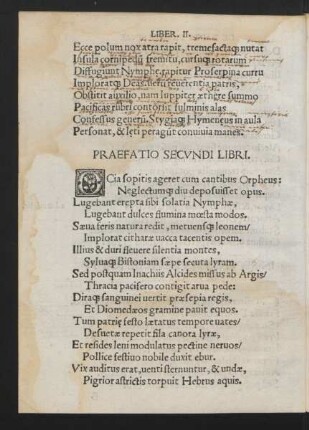 LIBER. II.
Ecce polum nox atra rapit, tremefactaq; nutat
Insula cornipedū fremitu, cursuq; rotarum
Diffugiunt Nymphę, rapitur Proserpina curru
Imploratq; Deas, fieri reuerentia patris,
Obstitit auxilio, nam Iuppiter æthere summo
Pacificas rubri contorsit fulminis alas
Confessus generū. Stygiaq; Hymeneus in aula
Personat, & lęti peragūt conuiuia manes.
PRAEFATIO SECVNDI LIBRI.
OCia sopitis ageret cum cantibus Orpheus:
Neglectumq; diu deposuisset opus.
Lugebant erepta sibi solatia Nymphæ,
Lugebant dulces flumina mœsta modos.
Sæua feris natura redit, metuensq; leonem/
Implorat citharæ uacca tacentis opem.
Illius & duri fleuere silentia montes,
Syluaq; Bistoniam sæpe secuta lyram.
Sed postquam Inachiis Alcides missus ab Argis/
Thracia pacifero contigit arua pede:
Diraq; sanguinei uertit præsepia regis,
Et Diomedæos gramine pauit equos.
Tum patrię festo lætatus tempore uates/
Desuetæ repetit fila canora lyræ,
Et resides leni modulatus pectine neruos/
Pollice festiuo nobile duxit ebur.
Vix auditus erat, uenti sternuntur, & undæ,
Pigrior astrictis torpuit Hebrus aquis.